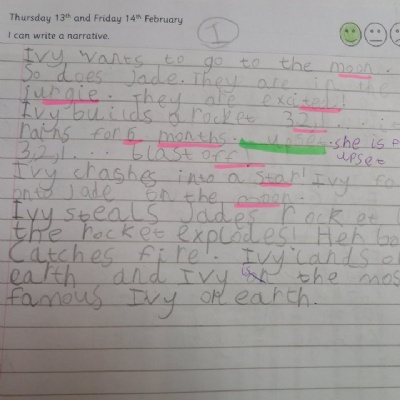 Thursday 13th and Friday 14th February
I can write a narrative.
1
Ivy wants to go to the moon.
So does Jade. They are in the
jungle. They are excited!
Ivy builds a rocket 321...
for 6 months. upset. she is
upset
321.... blast off
Ivy crashes into a star! Ivy
onto Jade on the moon.
Ivy steals Jades rocket
the rocket explodes! Her
catches fire! Ivy lands
earth and Ivy is the
famous Ivy on earth.